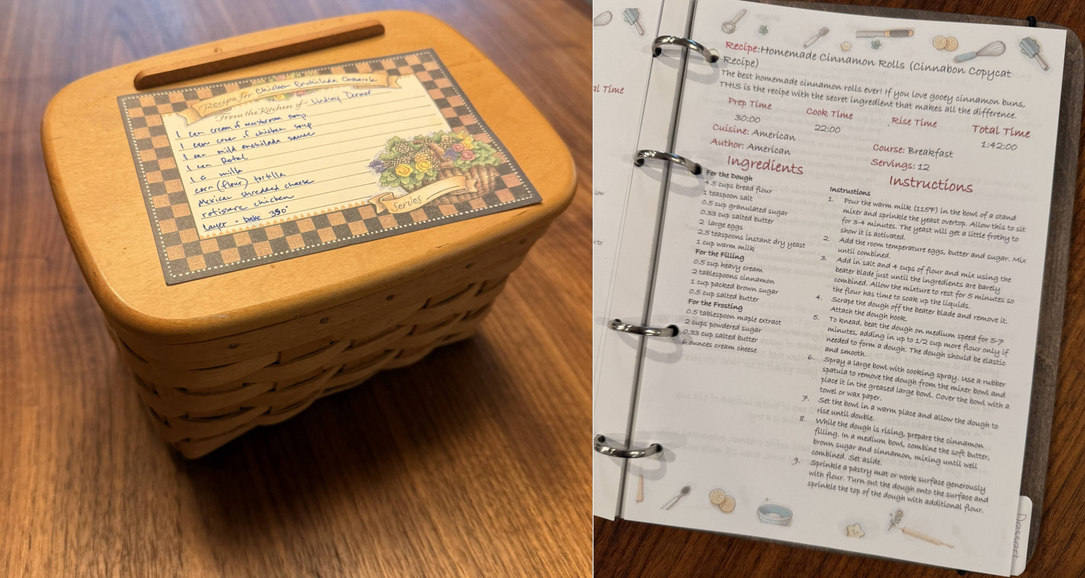 Recipe for Chicken Enchilada Casserole
From the Kitchen of
1 can cream of mushroom soup
1 can cream of chicken soup
1 can mild enchilada sauce
1 can Rotel
1 c milk
corn (flour) tortilla
Mexican shredded cheese
rotisserie chicken
Layer - bake 350°
Serves
al Time
Recipe:Homemade Cinnamon Rolls (Cinnabon Copycat
Recipe)
The best homemade cinnamon rolls ever! If you love gooey cinnamon buns,
THIS is the recipe with the secret ingredient that makes all the difference.
Prep Time
Cook Time
Rise Time
Total Time
30:00
22:00
1:42:00
Cuisine: American
Course: Breakfast
Author: American
Servings: 12
Ingredients
For the Dough
4.5 cups bread flour
1 teaspoon salt
0.5 cup granulated sugar
0.33 cup salted butter
2 large eggs
2.5 teaspoons instant dry yeast
1 cup warm milk
For the Filling
0.5 cup heavy cream
2 tablespoons cinnamon
1 cup packed brown sugar
0.5 cup salted butter
For the Frosting
0.5 tablespoon maple extract
2 cups powdered sugar
0.33 cup salted butter
6 ounces cream cheese
Instructions
Instructions
1. Pour the warm milk (115°F) in the bowl of a stand
mixer and sprinkle the yeast overtop. Allow this to sit
for 3-4 minutes. The yeast will get a little frothy to
show it is activated.
2. Add the room temperature eggs, butter and sugar. Mix
until combined.
3. Add in salt and 4 cups of flour and mix using the
beater blade just until the ingredients are barely
combined. Allow the mixture to rest for 5 minutes so
the flour has time to soak up the liquids.
4. Scrape the dough off the beater blade and remove it.
Attach the dough hook.
5. To knead, beat the dough on medium speed for 5-7
minutes, adding in up to 1/2 cup more flour only if
needed to form a dough. The dough should be elastic
and smooth.
6. Spray a large bowl with cooking spray. Use a rubber
spatula to remove the dough from the mixer bowl and
place it in the greased large bowl. Cover the bowl with a
towel or wax paper.
7. Set the bowl in a warm place and allow the dough to
rise until double.
8. While the dough is rising, prepare the cinnamon
filling. In a medium bowl, combine the soft butter,
brown sugar and cinnamon, mixing until well
combined. Set aside.
9. Sprinkle a pastry mat or work surface generously
with flour. Turn out the dough onto the surface and
sprinkle the top of the dough with additional flour.
Dessert